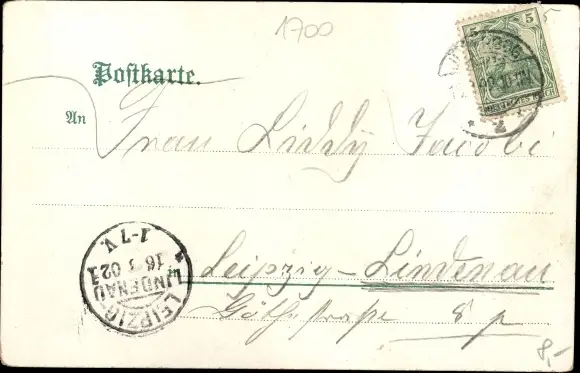 1700
5 5
Postkarte.
An
Frau Liddy Jacobi
Leipzig-Lindenau
Göthestraße 8 p
LEIPZIG-
LINDENAU
16 3 02
1-7 V.
8,-